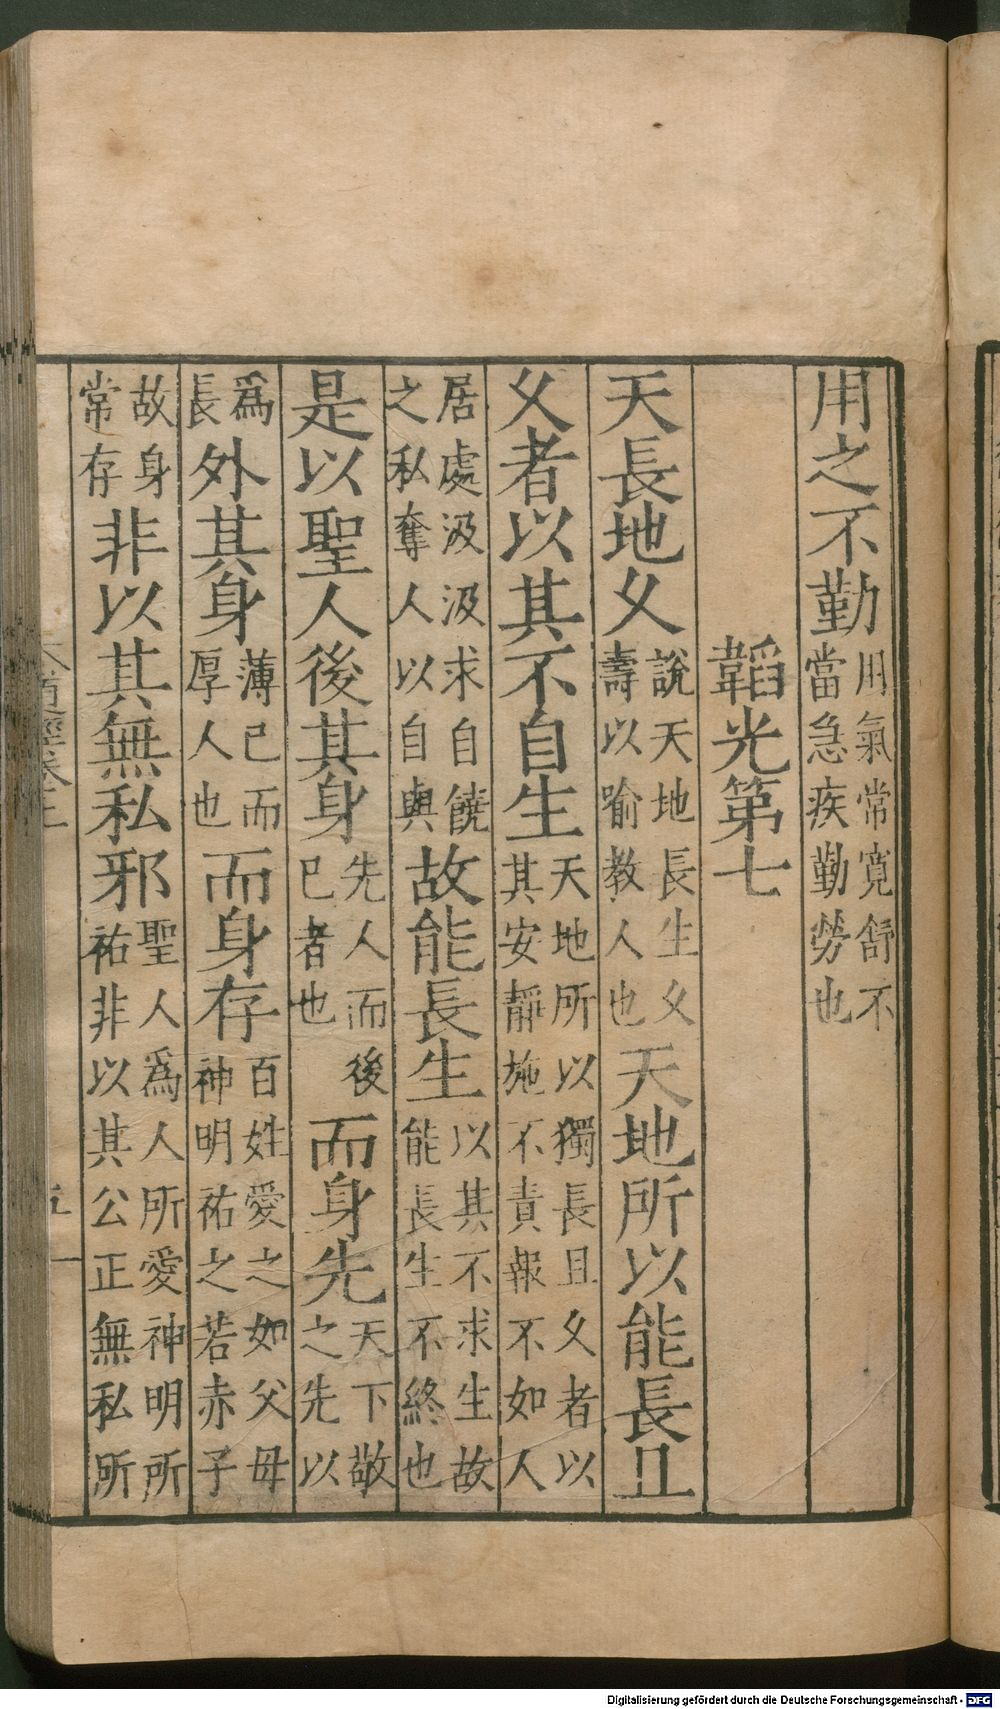 用之不勤用氣常寬舒不當急疾勤勞也
韜光第七
天長地久說天地長生久壽以喻教人也天地所以能長且
久者以其不自生天地所以獨長且久者以其安靜施不責報不如人
居處汲汲求自饒之私奪人以自與故能長生以其不求生故能長生不終也
是以聖人後其身先人而後己者也而身先天下敬之先以
爲長外其身薄己而厚人也而身存百姓愛之如父母神明祐之若赤子
故身常存非以其無私邪聖人爲人所愛神明所祐非以其公正無私所
道經卷上
五
Digitalisierung gefördert durch die Deutsche Forschungsgemeinschaft - DFG